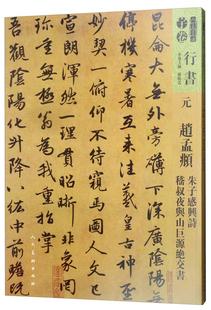 行書
元
趙孟頫
朱子感興詩
嵇叔夜與山巨源絕交書
崑崙大無外旁薄下深廣陰陽無
停機寒暑互來往羲皇古神聖
妙契一俯仰不待窺馬圖人文已
宣朗渾然一理貫昭晰非象罔
珍重無極翁為我重指掌
吾觀陰陽化升降八紘中前瞻既
人民美術出版社